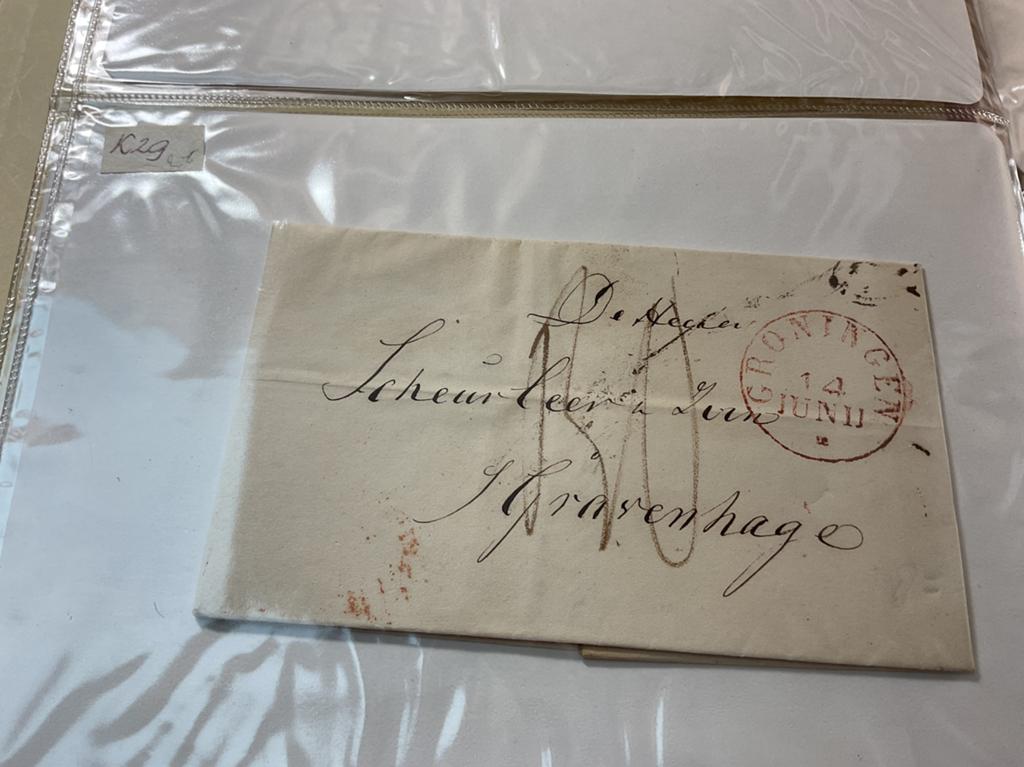 K29
De Heeren
Scheurleer & Zoon
s'Gravenhage
GRONINGEN
14
JUNIJ